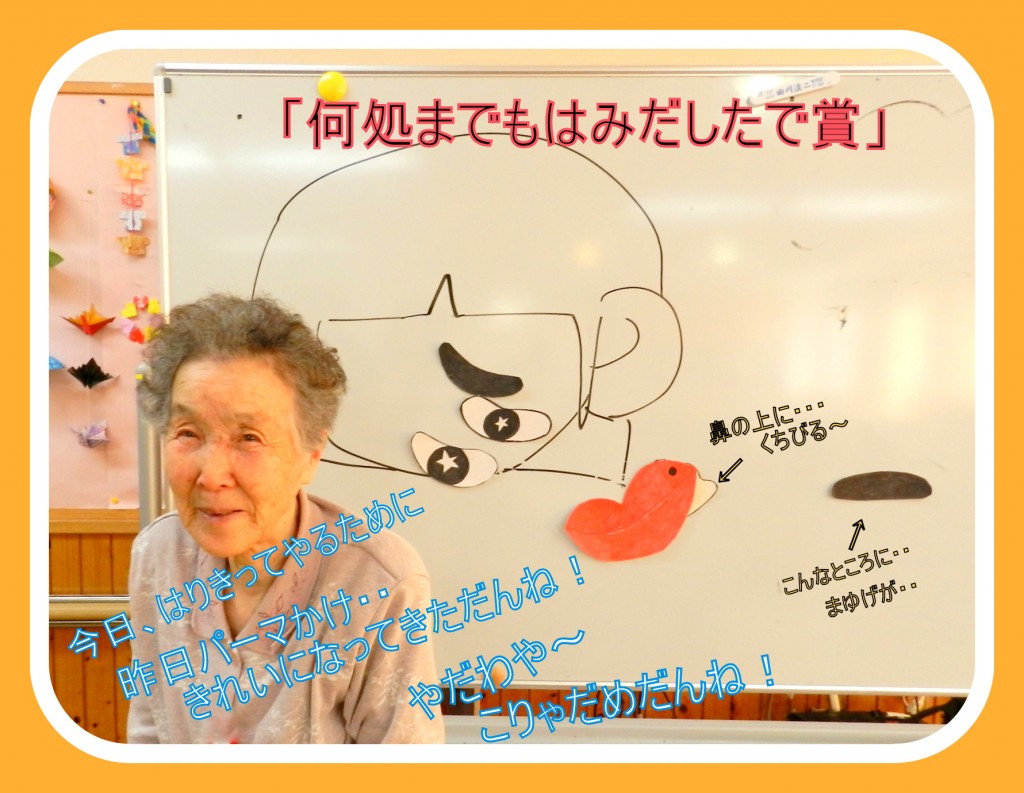 「何処までもはみだしたで賞」
鼻の上に・・・
くちびる～
こんなところに・・
まゆげが・・
今日、はりきってやるために
昨日パーマかけ・・
きれいになってきただんね！
やだわや～
こりゃだめだんね！